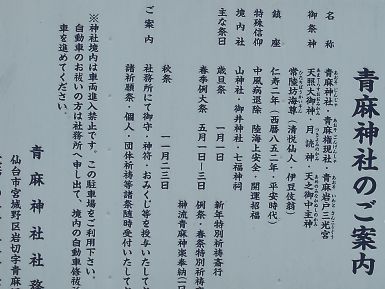 青麻神社のご案内
名称 青麻神社・青麻権現社・青麻岩戸三光宮
御祭神 天照大御神 月読神 天之御中主神
常陸坊海尊（清悦仙人・伊豆佐翁）
鎮座 仁寿二年（西暦八五二年・平安時代）
特殊信仰 中風病退除 陸海上安全・開運招福
境内社 山神社・御井神社・七福神祠
主な祭日 歳旦祭 一月一日 新年特別祈祷斎行
春季例大祭 五月一日〜三日 例祭・春祭特別祈祷
榊流青麻神楽奉納（二日
秋祭 一一月二三日
ご案内 社務所にて御守・神符・おみくじ等を授与いたして
諸祈願祭・個人・団体祈祷等諸祭随時受付いたして
※神社境内は車両進入禁止です。この駐車場をご利用下さい。
自動車のお祓いの方は社務所へ申し出て、境内の自動車修祓
車を進めてください。
青麻神社社務
仙台市宮城野区岩切字青麻